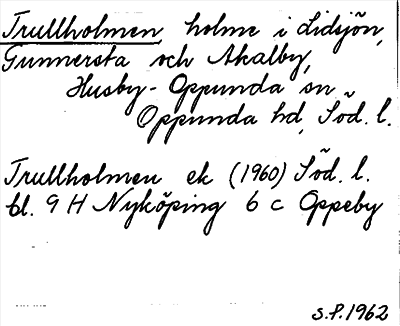 Trullholmen, holme i Lidsjön,
Gunnersta och Akalby,
Husby-Oppunda sn
Oppunda hd, Söd. l.
Trullholmen ek (1960) Söd. l.
bl. 9 H Nyköping 6 c Oppeby
S.P. 1962